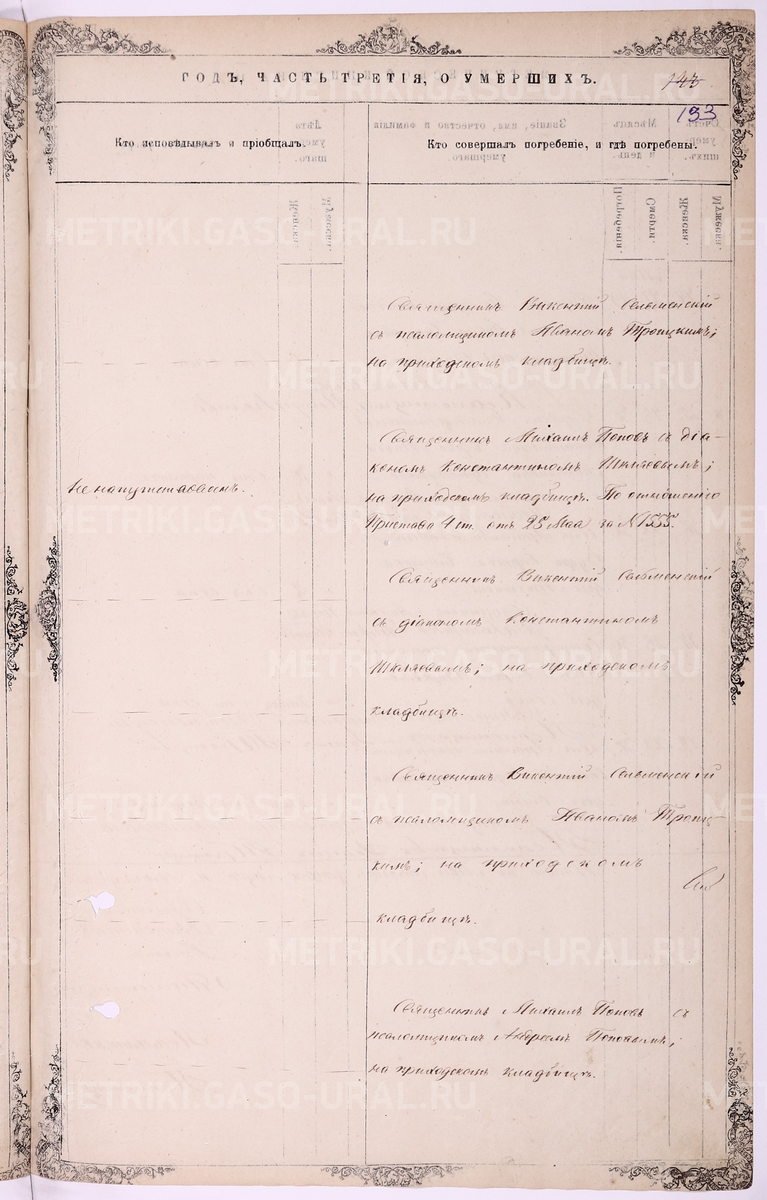 ГОДЪ, ЧАСТЬ ТРЕТІЯ, О УМЕРШИХЪ.
133
Кто исповѣдывалъ и пріобщалъ.
Кто совершалъ погребеніе, и гдѣ погребены.
Священникъ Викентій Сельменскій
съ псаломщикомъ Иваномъ Троицкимъ;
на приходскомъ кладбищѣ.
Священникъ Михаилъ Поповъ съ діа-
кономъ Константиномъ Шкляевымъ;
Не напутствованъ.
на приходскомъ кладбищѣ. По отношенію
Пристава 4 ст. отъ 25 Мая за №1555.
Священникъ Викентій Сельменскій
съ діакономъ Константиномъ
Шкляевымъ; на приходскомъ
кладбищѣ.
Священникъ Викентій Сельменскій
съ псаломщикомъ Иваномъ Троиц-
кимъ; на приходскомъ
кладбищѣ.
Священникъ Михаилъ Поповъ съ
псаломщикомъ Андреемъ Поповымъ;
на приходскомъ кладбищѣ.
METRIKI.GASO-URAL.RU